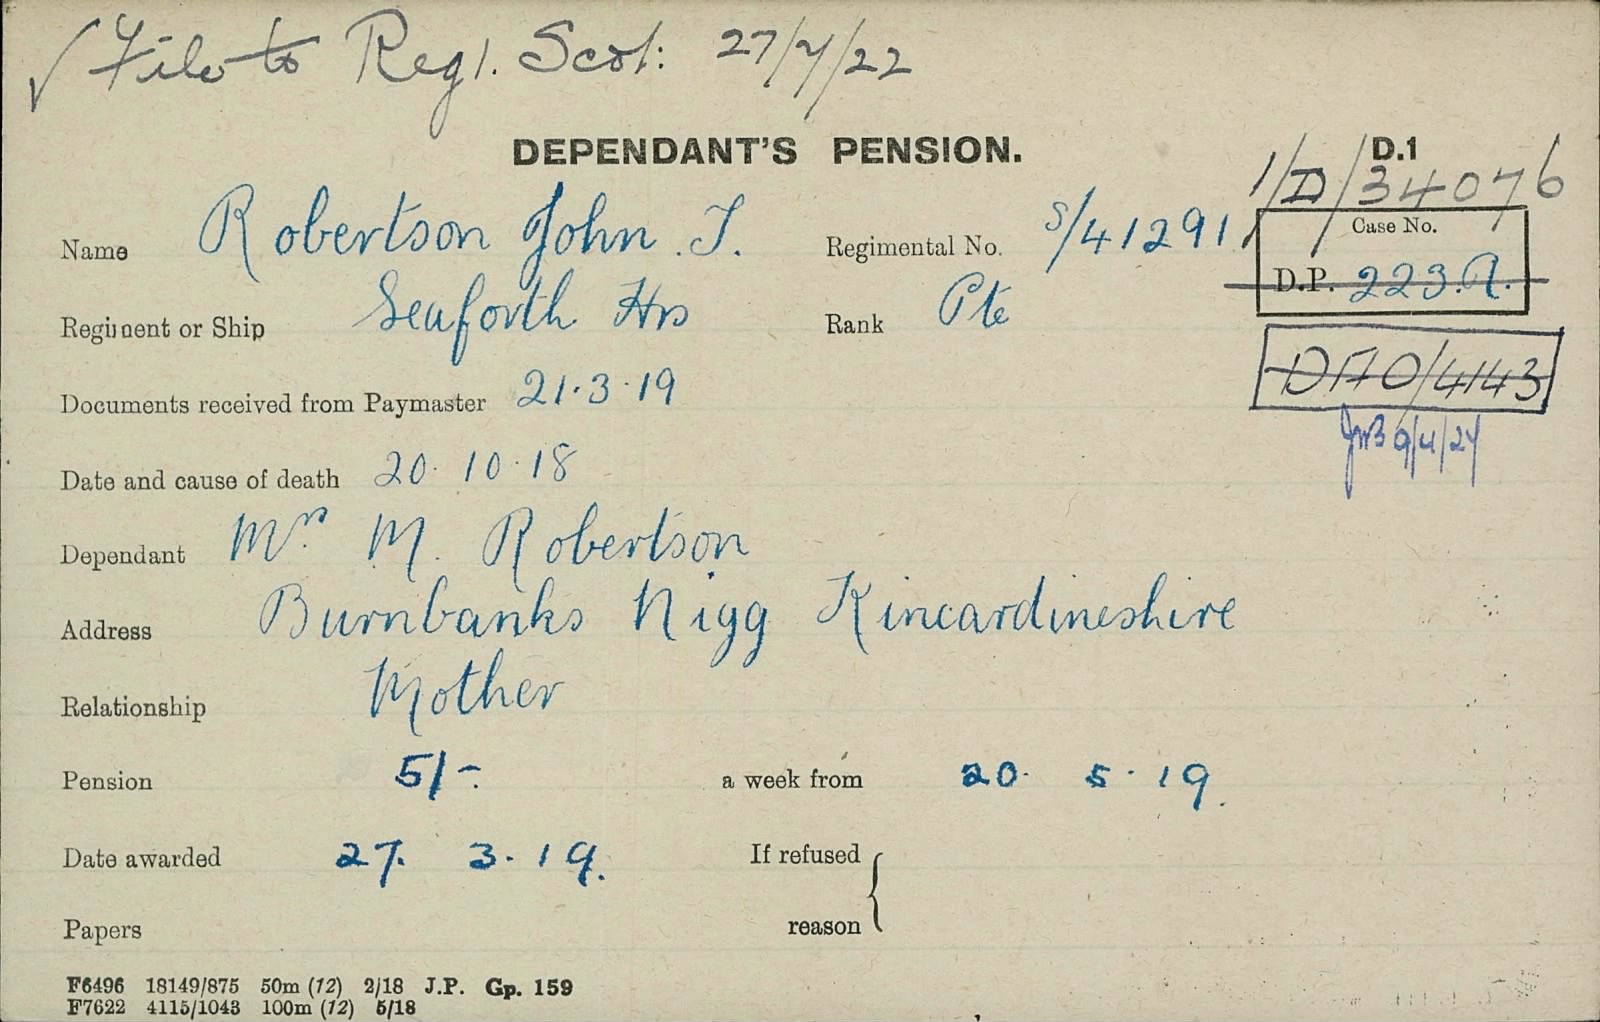 ✓ File to Regl. Scot: 27/7/22
DEPENDANT'S PENSION.
D.1
1/D/34076
Name Robertson John J. Regimental No. S/41291
Case No.
D.P. 223.A.
Regiment or Ship Seaforth Hrs Rank Pte
DAO/4143
Documents received from Paymaster 21.3.19
JWB 9/4/24
Date and cause of death 20. 10.18
Dependant Mrs M. Robertson
Address Burnbanks Nigg Kincardineshire
Relationship Mother
Pension 5/-. a week from 20. 5.19.
Date awarded 27. 3.19. If refused
Papers reason
F6496 18149/875 50m (12) 2/18 J.P. Gp. 159
F7622 4115/1043 100m (12) 5/18